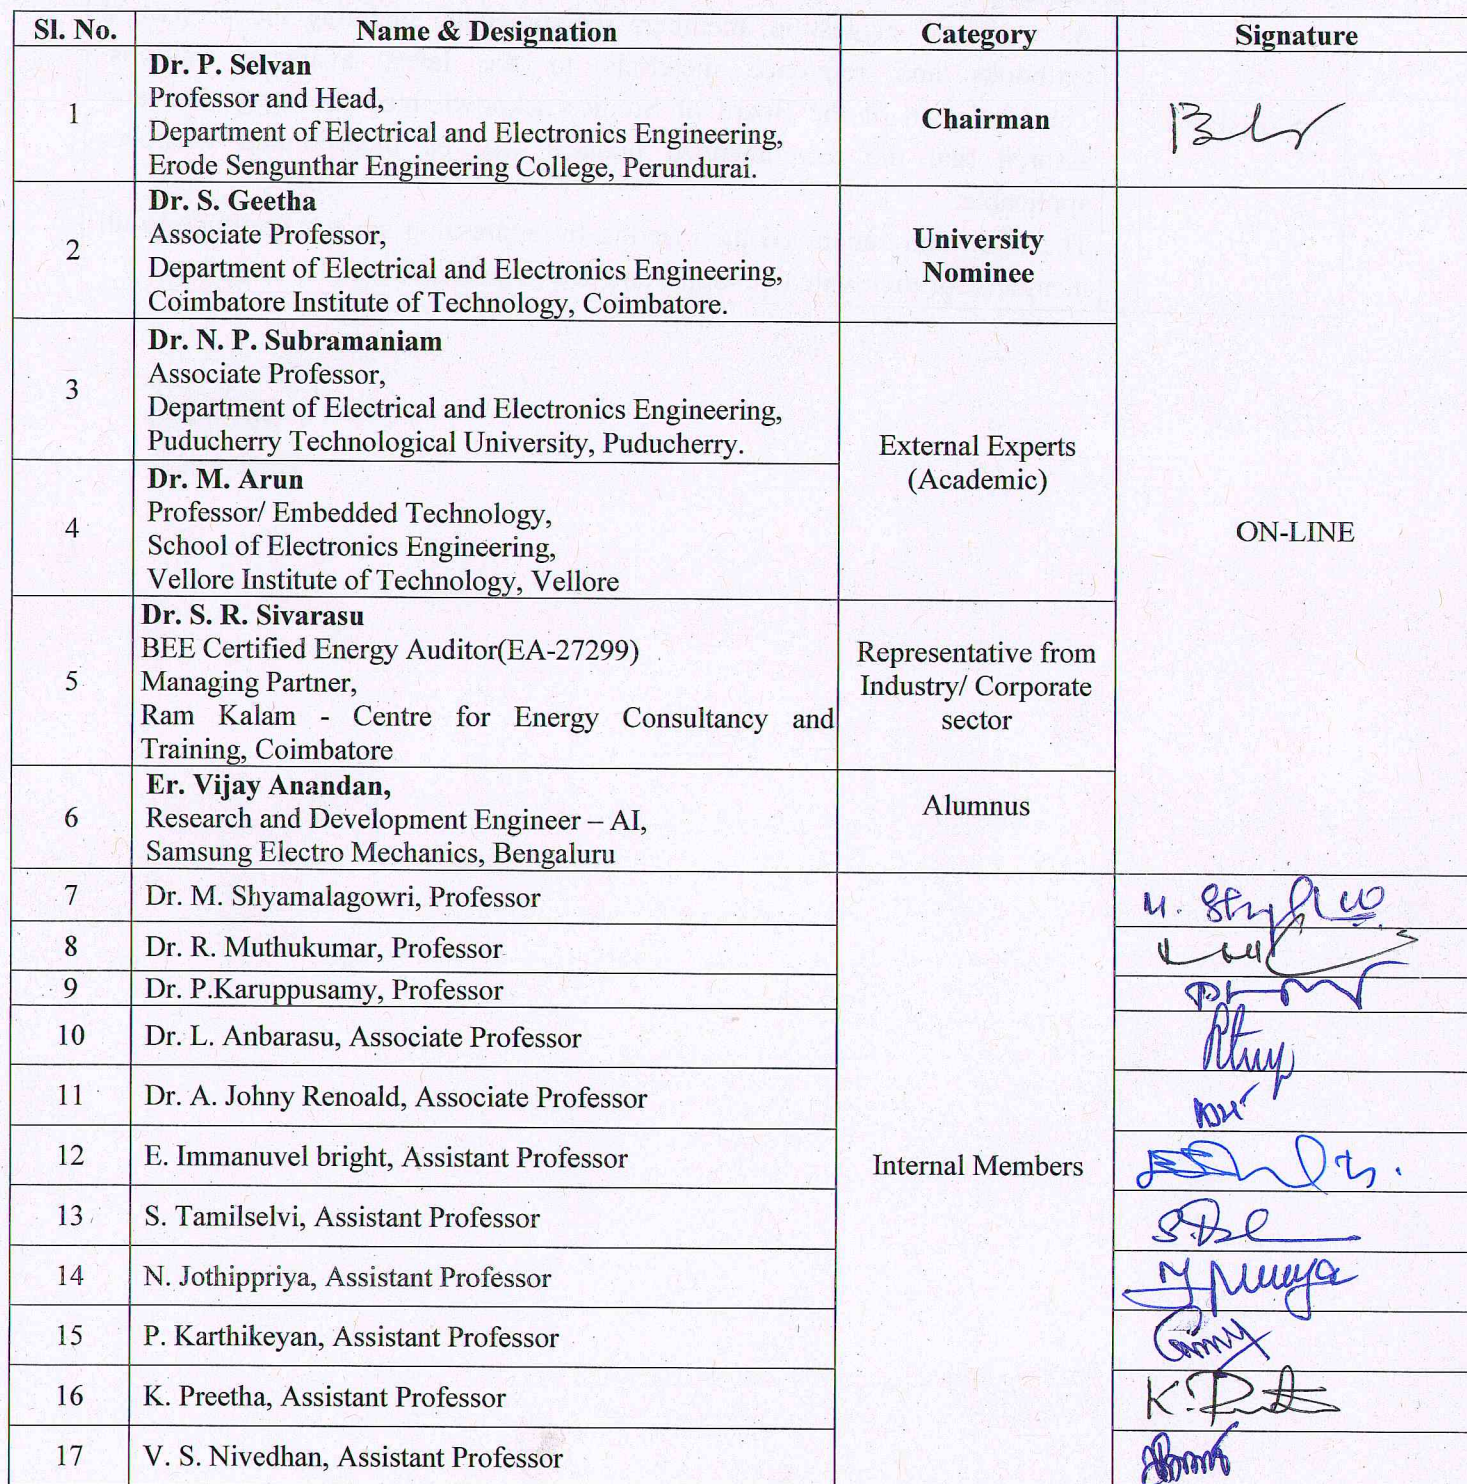 Sl. No. Name & Designation Category Signature
1
Dr. P. Selvan
Professor and Head,
Department of Electrical and Electronics Engineering,
Erode Sengunthar Engineering College, Perundurai.
Chairman
2
Dr. S. Geetha
Associate Professor,
Department of Electrical and Electronics Engineering,
Coimbatore Institute of Technology, Coimbatore.
University
Nominee
3
Dr. N. P. Subramaniam
Associate Professor,
Department of Electrical and Electronics Engineering,
Puducherry Technological University, Puducherry.
External Experts
(Academic)
4
Dr. M. Arun
Professor/ Embedded Technology,
School of Electronics Engineering,
Vellore Institute of Technology, Vellore
ON-LINE
5
Dr. S. R. Sivarasu
BEE Certified Energy Auditor(EA-27299)
Managing Partner,
Ram Kalam - Centre for Energy Consultancy and
Training, Coimbatore
Representative from
Industry/ Corporate
sector
6
Er. Vijay Anandan,
Research and Development Engineer – AI,
Samsung Electro Mechanics, Bengaluru
Alumnus
7 Dr. M. Shyamalagowri, Professor
8 Dr. R. Muthukumar, Professor
9 Dr. P.Karuppusamy, Professor
10 Dr. L. Anbarasu, Associate Professor
11 Dr. A. Johny Renoald, Associate Professor
12 E. Immanuvel bright, Assistant Professor
Internal Members
13 S. Tamilselvi, Assistant Professor
14 N. Jothippriya, Assistant Professor
15 P. Karthikeyan, Assistant Professor
16 K. Preetha, Assistant Professor
17 V. S. Nivedhan, Assistant Professor